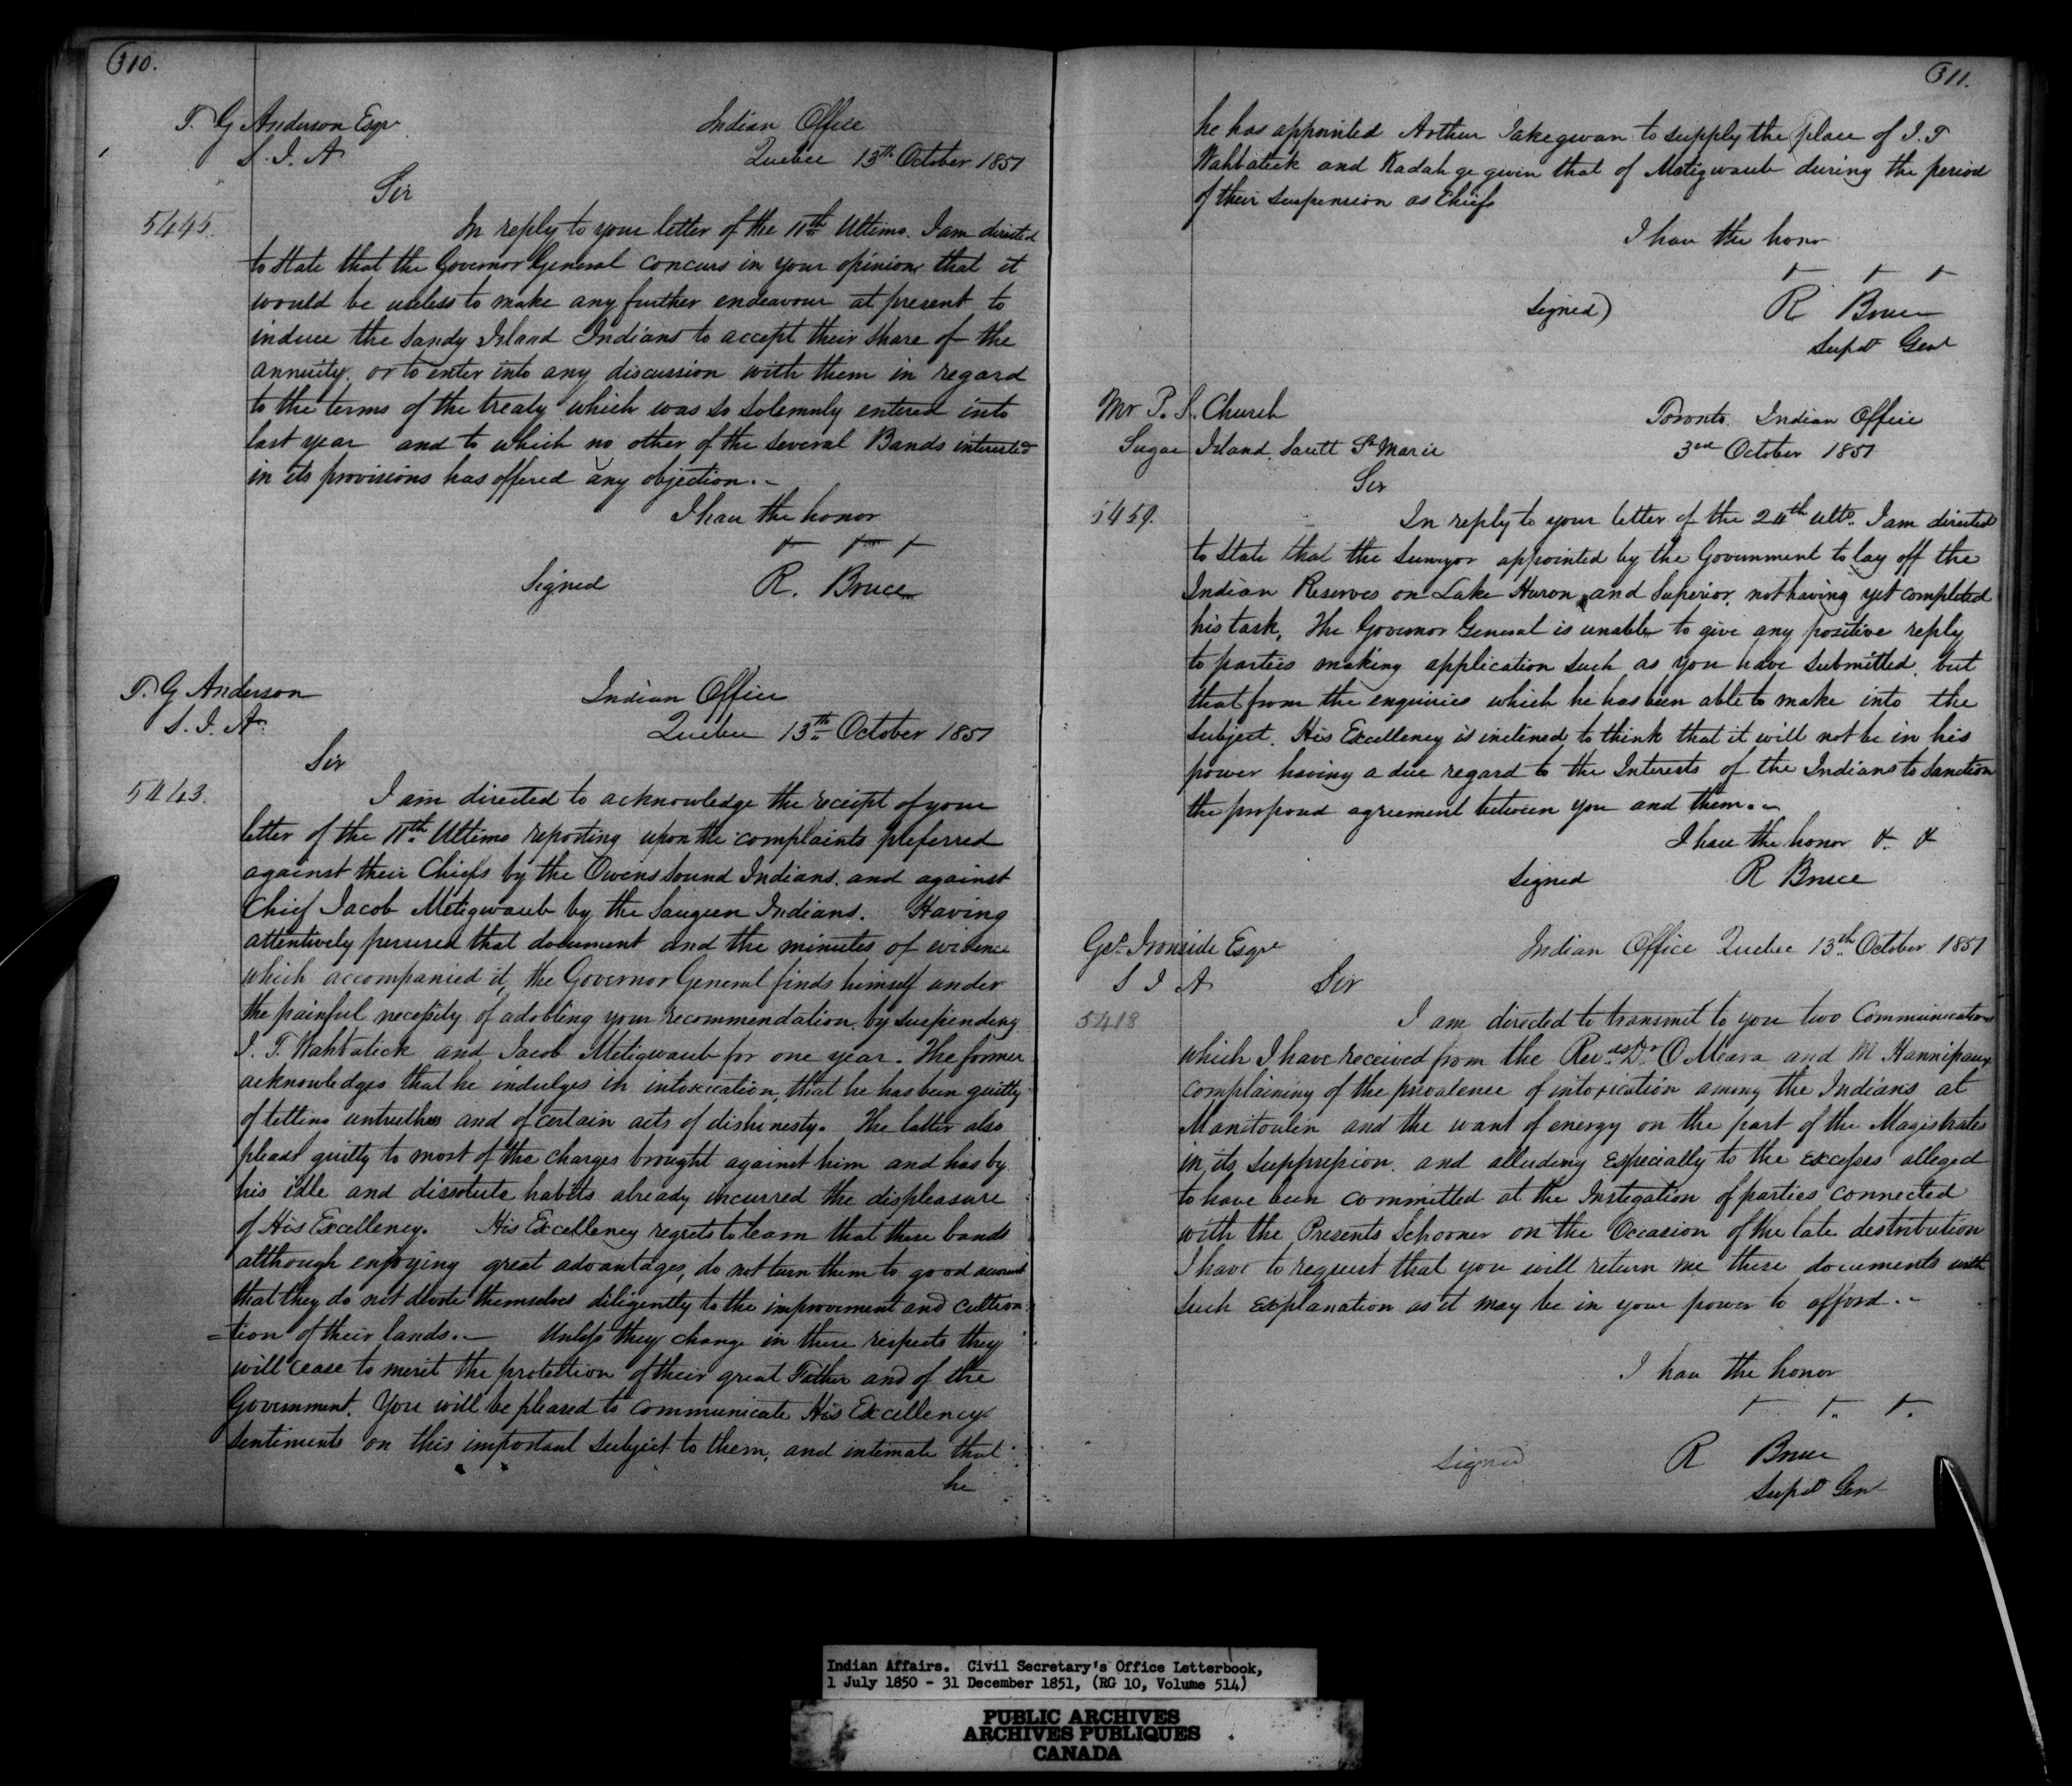 310.
T. G Anderson Esqr
S. I. A
Indian Office
Quebec 13th October 1851
Sir
5445.
In reply to your letter of the 11th Ultimo. I am directed
to state that the Governor General concurs in your opinion that it
would be useless to make any further endeavour at present to
induce the Sandy Island Indians to accept their share of the
annuity. or to enter into any discussion with them in regard
to the terms of the treaty which was so solemnly entered into
last year and to which no other of the several Bands interested
in its provisions has offered any objection.-
I have the honor
Signed R. Bruce
T. G Anderson
S. I. A
Indian Office
Quebec 13th October 1851
Sir
5443.
I am directed to acknowledge the receipt of your
letter of the 11th Ultimo reporting upon the complaints preferred
against their Chiefs by the Owens Sound Indians. and against
Chief Jacob Metigwaub by the Saugeen Indians. Having
attentively perused that document and the minutes of evidence
which accompanied it, the Governor General finds himself under
the painful necessity of adobting your recommendation by suspending
J. T. Wahbatick and Jacob Metigwaub for one year. The former
acknowledges that he indulges in intoxication, that he has been guilty
of telling untruths and of certain acts of dishonesty. The latter also
pleads guilty to most of the charges brought against him and has by
his idle and dissolute habits already incurred the displeasure
of His Excellency. His Excellency regrets to learn that these bands
although enjoying great advantages, do not turn them to good account
that they do not devote themselves diligently to the improvement and cultiva
=tion of their lands.- Unless they change in these respects they
will cease to merit the protection of their great Father and of the
Government. You will be pleased to communicate His Excellency
sentiments on this important subject to them, and intimate that
he
311.
he has appointed Arthur Takegwan to supply the place of J. T
Wahbatick and Kadah ge gwin that of Metigwaub during the period
of their suspension as Chiefs
I have the honor
Signed) R Bruce
Supdt Genl
Mr P. S. Church
Sugar Island. Sault St Marie
Toronto. Indian Office
3rd October 1851
Sir
5459.
In reply to your letter of the 24th ulto. I am directed
to state that the Surveyor appointed by the Government to lay off the
Indian Reserves on Lake Huron and Superior, not having yet completed
his task, The Governor General is unable to give any positive reply
to parties making application such as you have submitted. but
that from the enquiries which he has been able to make into the
subject. His Excellency is inclined to think that it will not be in his
power having a due regard to the Interests of the Indians to sanction
the proposed agreement between you and them.-
I have the honor & &
Signed R Bruce
Geo. Ironside Esqr
S I A
Indian Office Quebec 13th October 1851
Sir
5418
I am directed to transmit to you two Communications
which I have received from the Revds Dr O Meara and M Hannipaux
complaining of the prevalence of intoxication among the Indians at
Manitoulin and the want of energy on the part of the Magistrates
in its suppression. and alluding especially to the excesses alleged
to have been committed at the Instigation of parties connected
with the Presents Schooner on the Occasion of the late distribution
I have to request that you will return me these documents with
such explanation as it may be in your power to afford.-
I have the honor
Signed R Bruce
Supdt Genl
Indian Affairs. Civil Secretary's Office Letterbook,
1 July 1850 - 31 December 1851, (RG 10, Volume 514)
PUBLIC ARCHIVES
ARCHIVES PUBLIQUES
CANADA